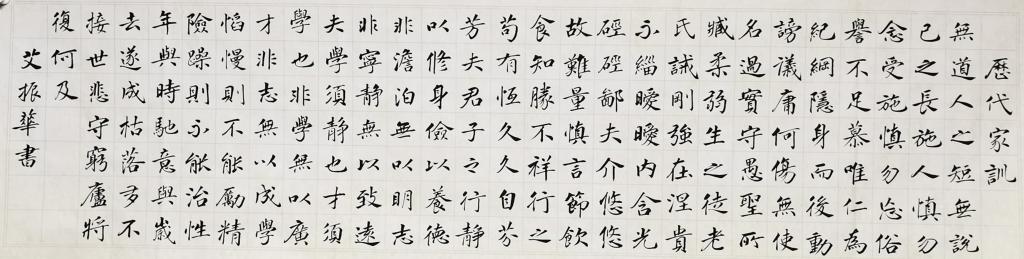 歷代家訓
無道人之短無說
己之長施人慎勿
念受施慎勿忘俗
譽不足慕唯仁為
紀綱隱身而後動
謗議庸何傷無使
名過實守愚聖所
臧柔弱生之徒老
氏誡剛強在涅貴
不緇曖曖內含光
硜硜鄙夫介悠悠
故難量慎言節飲
食知勝不祥行之
苟有恆久久自芬
芳夫君子之行靜
以修身儉以養德
非澹泊無以明志
非寧靜無以致遠
夫學須靜也才須
學也非學無以廣
才非志無以成學
慆慢則不能勵精
險躁則不能治性
年與時馳意與歲
去遂成枯落多不
接世悲守窮廬將
復何及
艾振華書